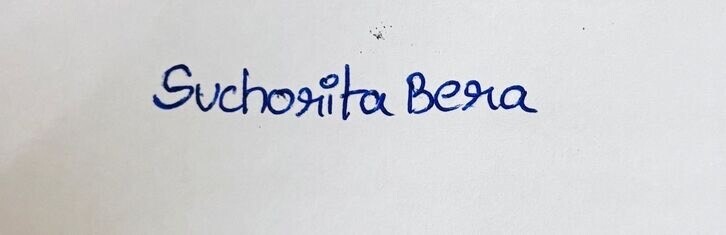 Suchorita Bera